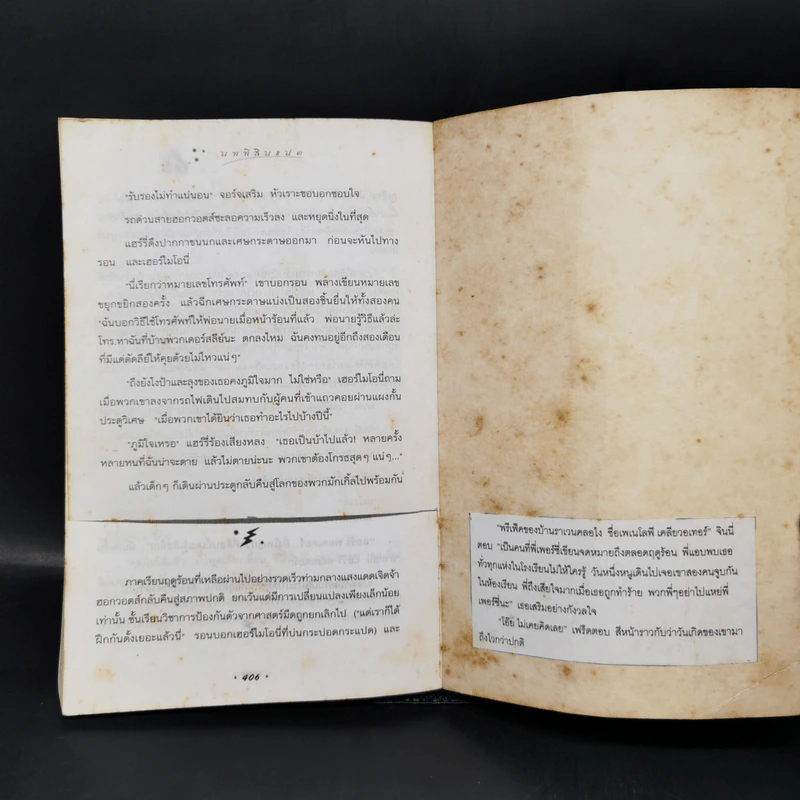 "รับรองไม่ทำแน่นอน" จอร์จเสริม หัวเราะชอบอกชอบใจ
รถด่วนสายฮอกวอตส์ชะลอความเร็วลง และหยุดนิ่งในที่สุด
แฮร์รี่ดึงปากกาขนนกและเศษกระดาษออกมา ก่อนจะหันไปทาง
รอน และเฮอร์ไมโอนี่
"นี่เรียกว่าหมายเลขโทรศัพท์" เขาบอกรอน พลางเขียนหมายเลข
ขยุกขยิกสองครั้ง แล้วฉีกเศษกระดาษแบ่งเป็นสองชิ้นยื่นให้ทั้งสองคน
"ฉันบอกวิธีใช้โทรศัพท์ให้พ่อนายเมื่อหน้าร้อนที่แล้ว พ่อนายรู้วิธีแล้วล่ะ
โทร.หาฉันที่บ้านพวกเดอร์สลีย์นะ ตกลงไหม ฉันคงทนอยู่อีกถึงสองเดือน
ที่มีแต่ดัดลีย์ให้คุยด้วยไม่ไหวแน่ๆ"
"ถึงยังไงป้าและลุงของเธอคงภูมิใจมาก ไม่ใช่หรือ" เฮอร์ไมโอนี่ถาม
เมื่อพวกเขาลงจากรถไฟเดินไปสมทบกับผู้คนที่เข้าแถวคอยผ่านแผงกั้น
ประตูวิเศษ "เมื่อพวกเขาได้ยินว่าเธอทำอะไรไปบ้างปีนี้"
"ภูมิใจเหรอ" แฮร์รี่ร้องเสียงหลง "เธอเป็นบ้าไปแล้ว! หลายครั้ง
หลายหนที่ฉันน่าจะตาย แล้วไม่ตายน่ะนะ พวกเขาต้องโกรธสุดๆ แน่ๆ..."
แล้วเด็กๆ ก็เดินผ่านประตูกลับคืนสู่โลกของพวกมักเกิ้ลไปพร้อมกัน
ภาคเรียนฤดูร้อนที่เหลือผ่านไปอย่างรวดเร็วท่ามกลางแสงแดดเจิดจ้า
ฮอกวอตส์กลับคืนสู่สภาพปกติ ยกเว้นแต่มีการเปลี่ยนแปลงเพียงเล็กน้อย
เท่านั้น ชั้นเรียนวิชาการป้องกันตัวจากศาสตร์มืดถูกยกเลิกไป ("แต่เราก็ได้
ฝึกกันตั้งเยอะแล้วนี่" รอนบอกเฮอร์ไมโอนี่ที่บ่นกระปอดกระแปด) และ
• 406 •
"พรีเฟ็คของบ้านเรเวนคลอไง ชื่อเพเนโลพี เคลียวอเทอร์" จินนี่
ตอบ "เป็นคนที่พี่เพอร์ซี่เขียนจดหมายถึงตลอดฤดูร้อน พี่แอบพบเธอ
ทั่วทุกแห่งในโรงเรียนไม่ให้ใครรู้ วันหนึ่งหนูเดินไปเจอเขาสองคนจูบกัน
ในห้องเรียน พี่ถึงเสียใจมากเมื่อเธอถูกทำร้าย พวกพี่ๆอย่าไปแหย่พี่
เพอร์ซี่นะ" เธอเสริมอย่างกังวลใจ
"โอ๊ย ไม่เคยคิดเลย" เฟร็ดตอบ สีหน้าราวกับว่าวันเกิดของเขามา
ถึงไวกว่าปกติ